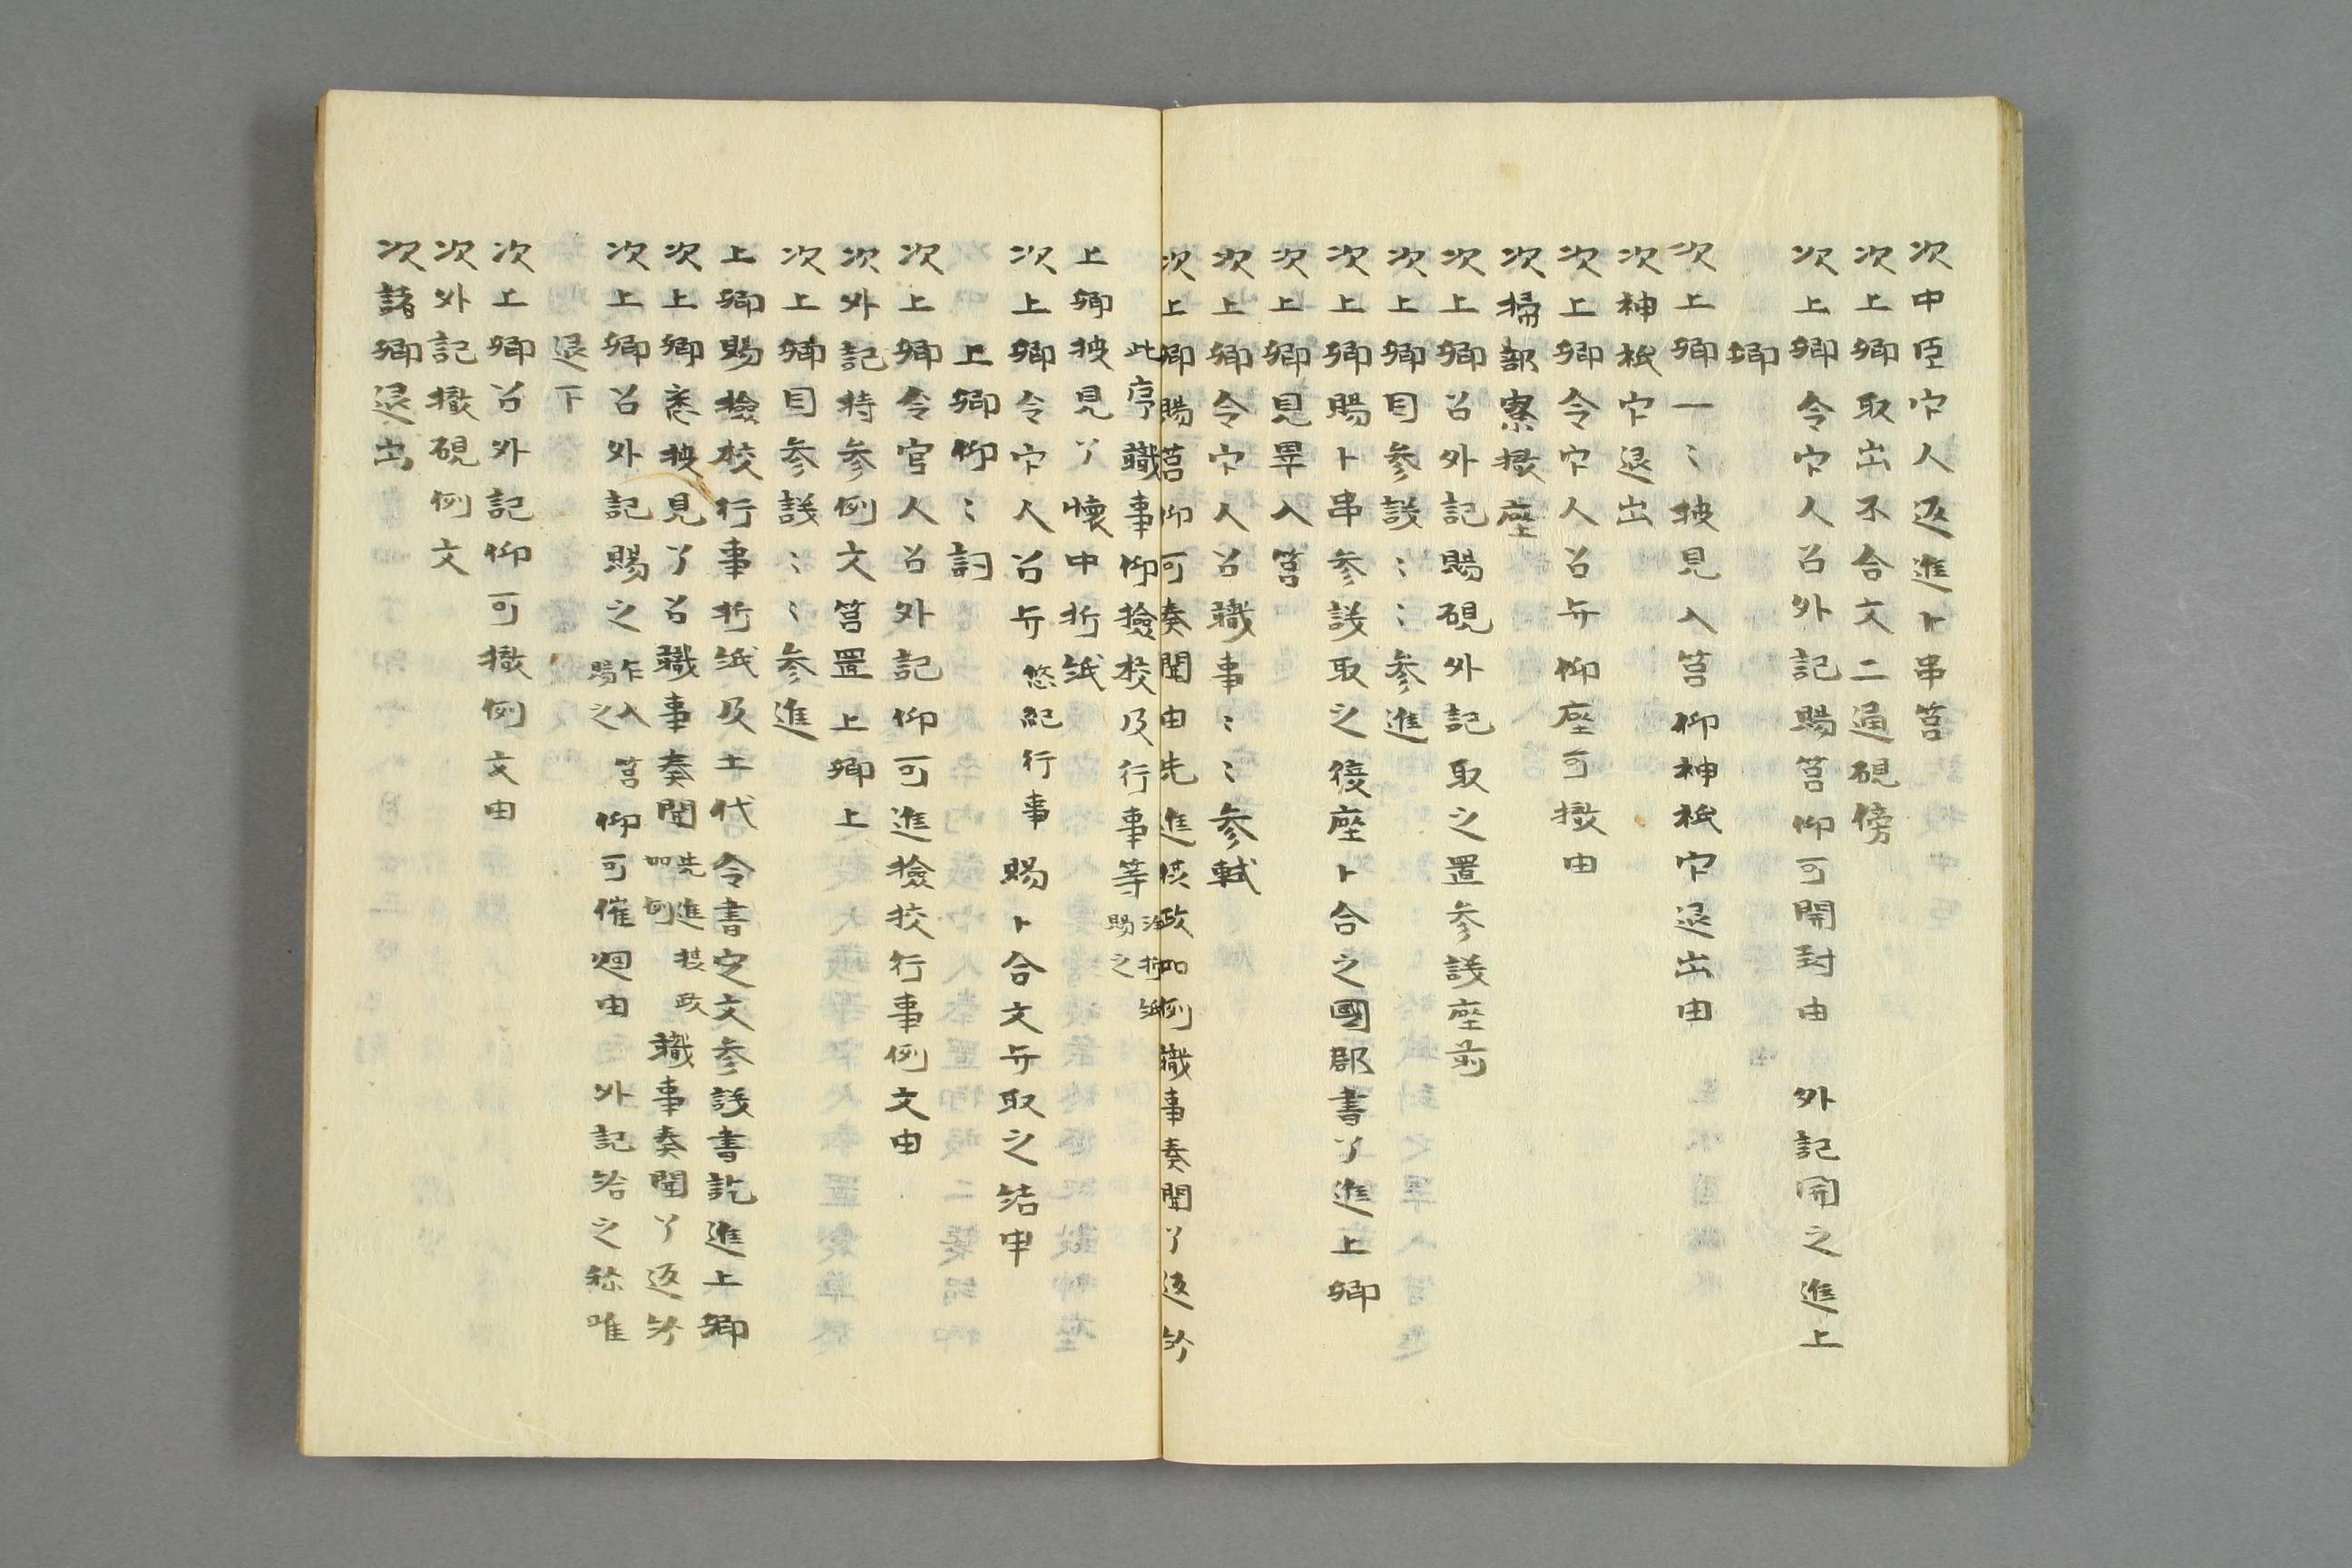 次中臣官人返進卜串筥
次上卿取出不合文二通硯傍
次上卿令官人召外記賜筥仰可開封由　外記開之進上
卿
次上卿一〻披見入筥仰神祇官退出由
次神祇官退出
次上卿令官人召弁仰座可撤由
次掃部寮撤座
次上卿召外記賜硯外記取之置参議座前
次上卿目参議〻〻参進
次上卿賜卜串参議取之復座卜合之國郡書了進上卿
次上卿見畢入筥
次上卿令官人召職事〻〻参軾
次上卿賜筥仰可奏聞由先進摂政如例職事奏聞了返給
此序職事仰撿校及行事等注折紙賜之
上卿披見了懐中折紙
次上卿令官人召弁悠紀行事　賜卜合文弁取之結申
上卿仰〻詞
次上卿令官人召外記仰可進撿挍行事例文由
次外記持参例文筥置上卿上
次上卿目参議〻〻参進
上卿賜撿校行事折紙及土代令書定文参議書訖進上卿
次上卿悉披見了召職事奏聞先進摂政如例　職事奏聞了返給
次上卿召外記賜之乍入筥賜之　仰可催廻由　外記給之称唯
退下
次上卿召外記仰可撤例文由
次外記撤硯例文
次諸卿退出